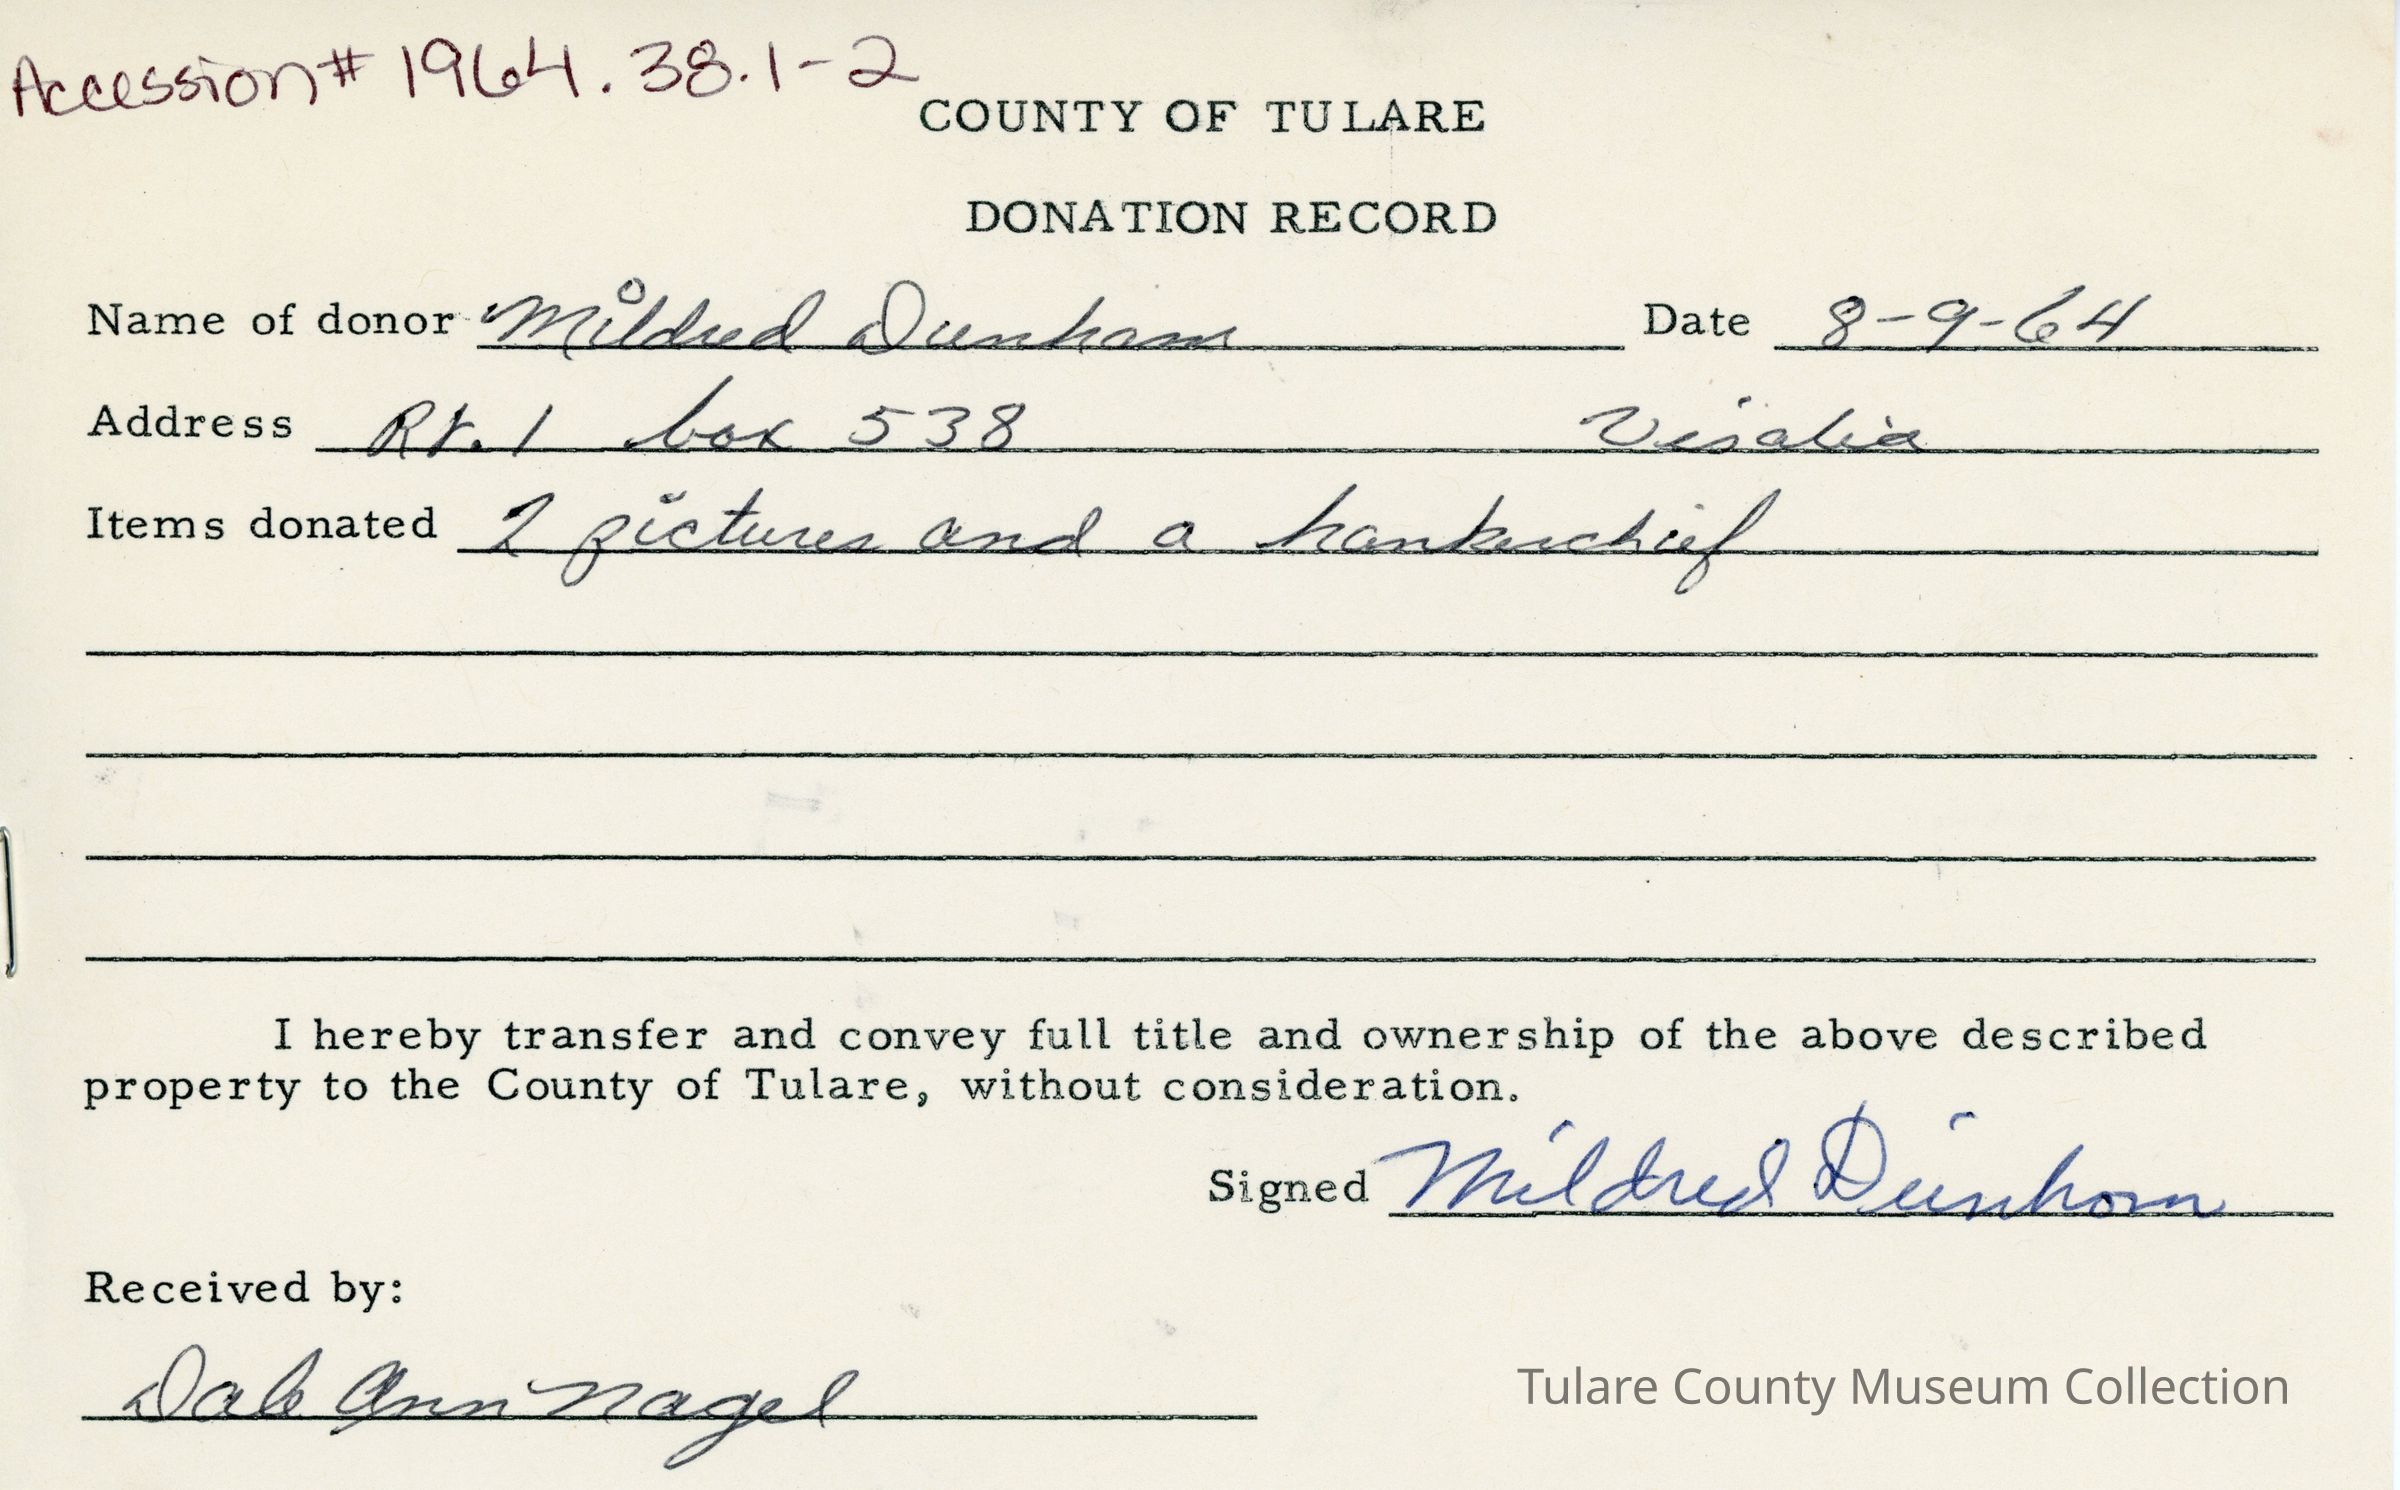 Accession# 1964.38.1-2
COUNTY OF TULARE
DONATION RECORD
Name of donor Mildred Dunham Date 8-9-64
Address Rt. 1 box 538 Visalia
Items donated 2 pictures and a hankerchief
I hereby transfer and convey full title and ownership of the above described
property to the County of Tulare, without consideration.
Signed Mildred Dunham
Received by:
Dale Ann Nagel
Tulare County Museum Collection